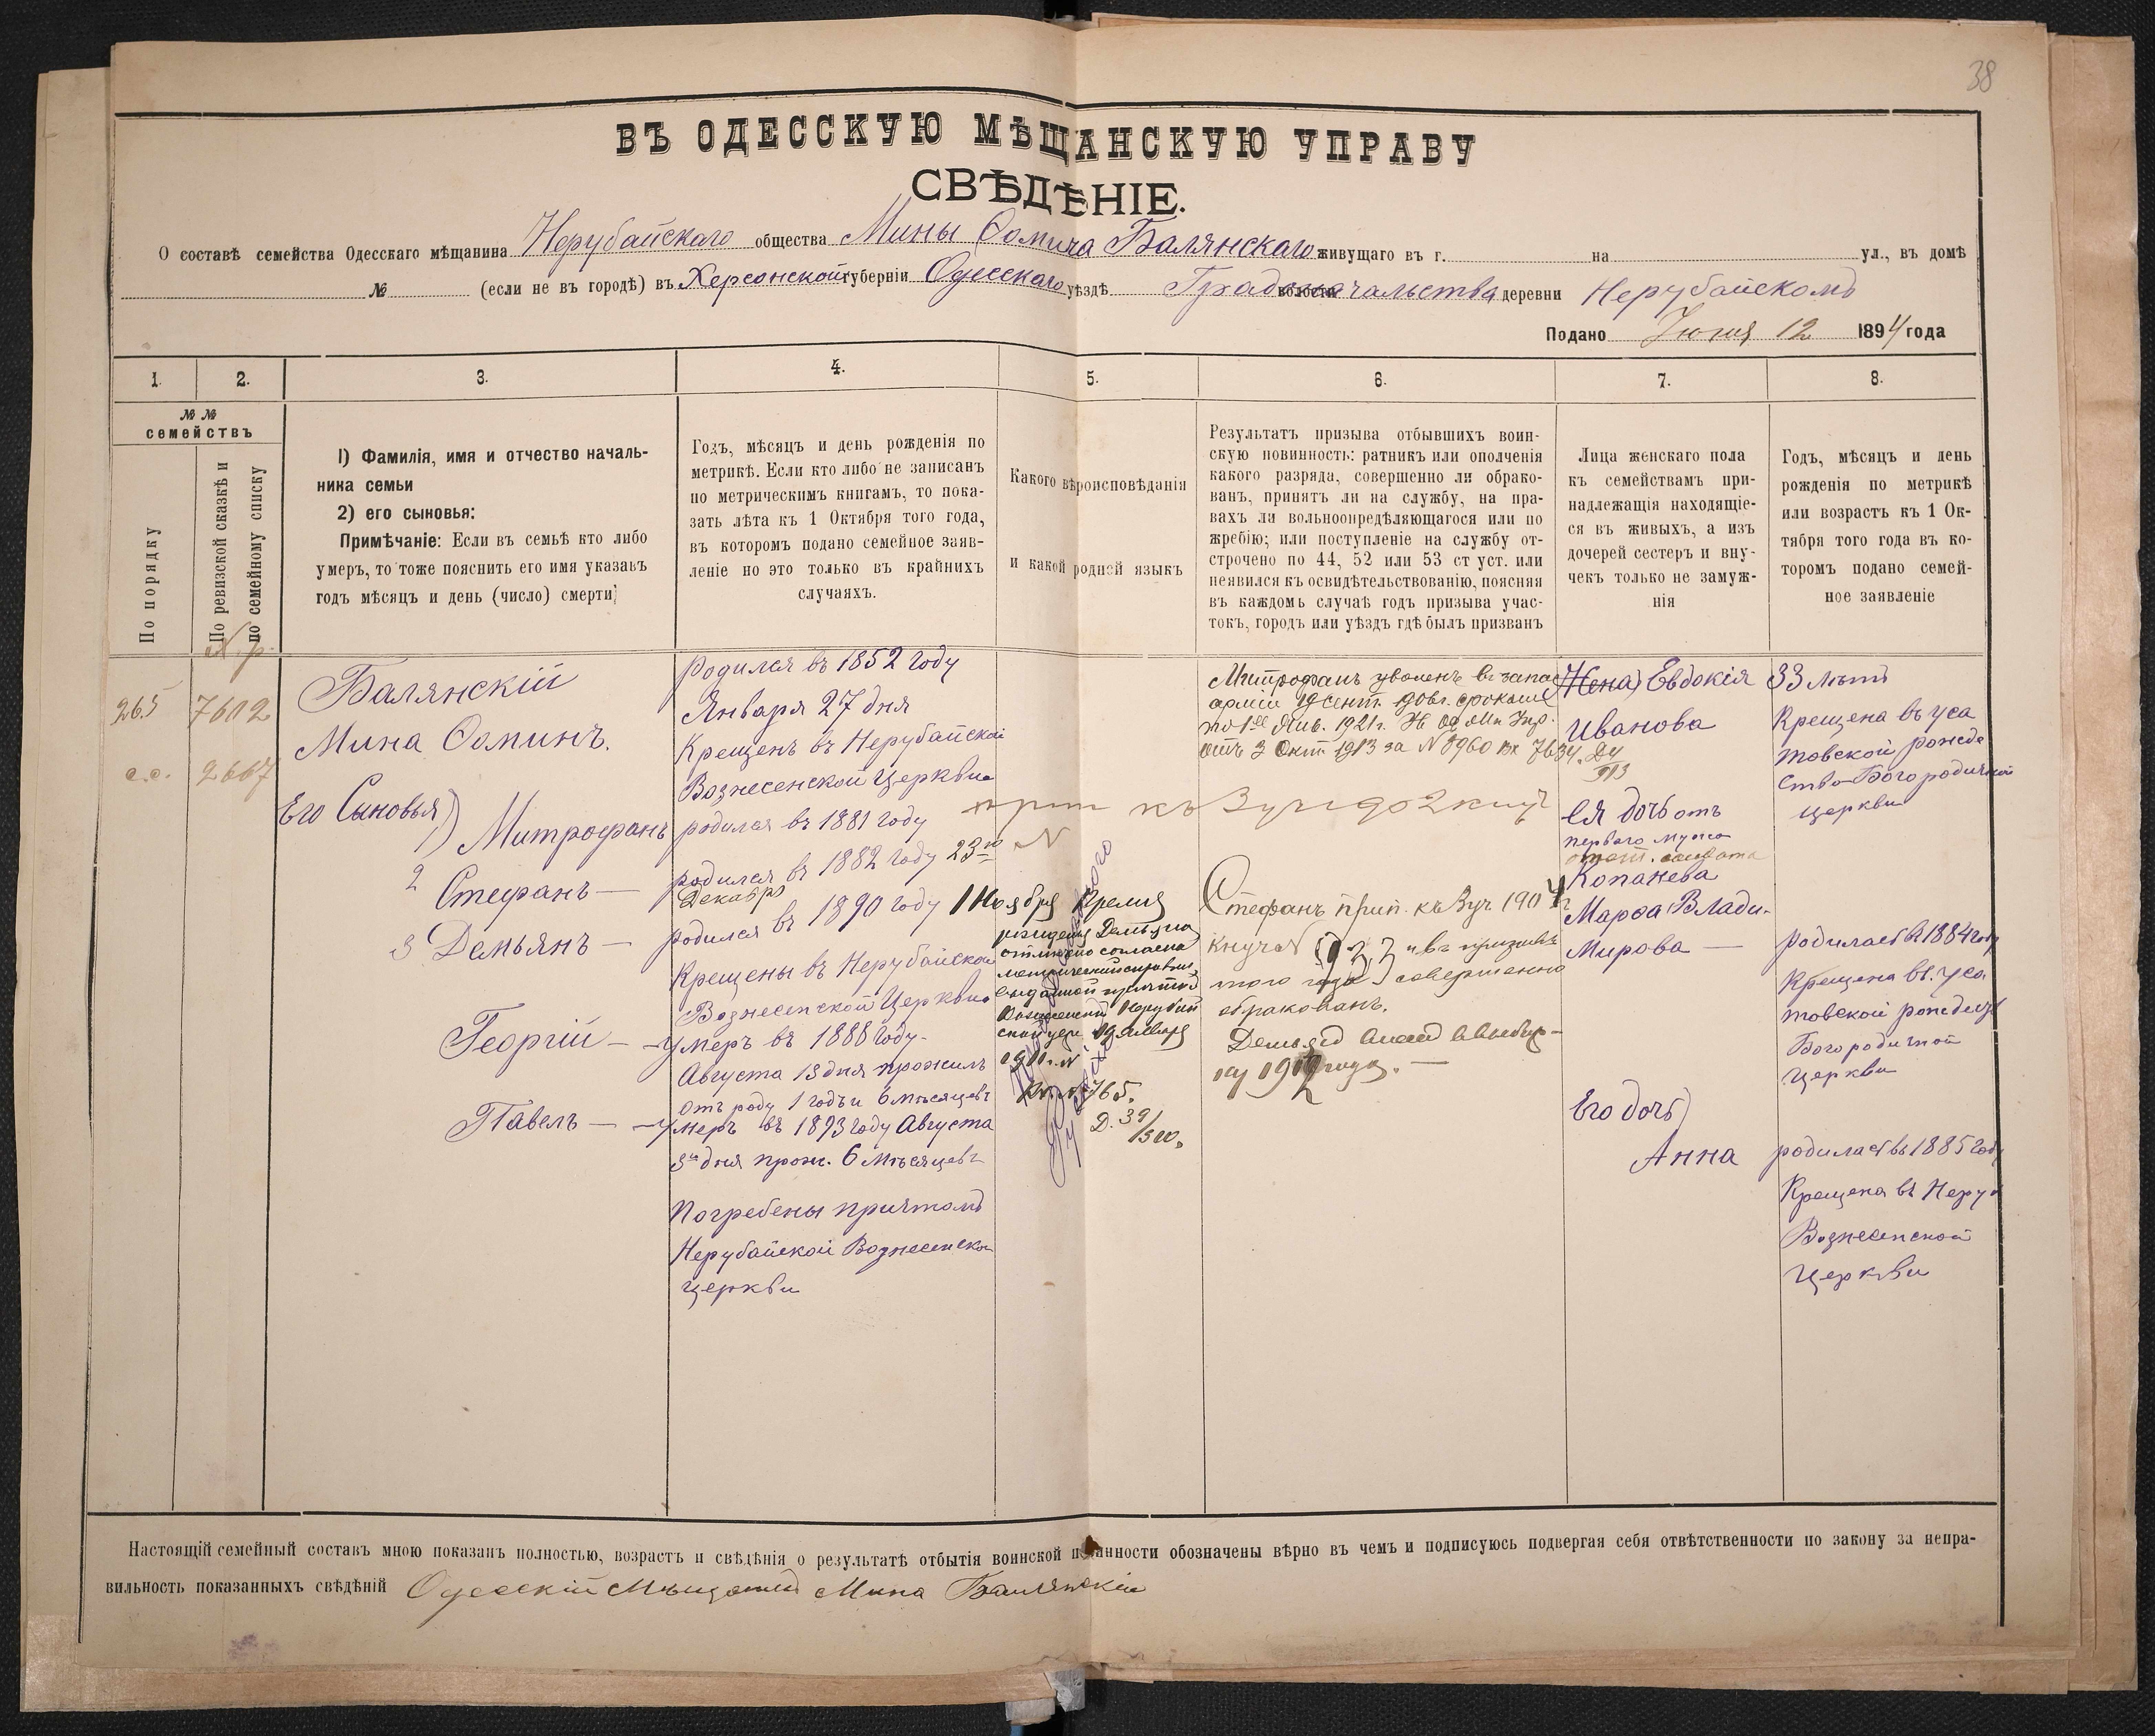 38
ВЪ ОДЕССКУЮ МѢЩАНСКУЮ УПРАВУ
СВѢДѢНІЕ.
О составѣ семейства Одесскаго мѣщанина Нерубайскаго общества Мины Ѳомича Балянскаго живущаго въ г. на ул., въ домѣ
№ (если не въ городѣ) въ Херсонской губерніи Одесскаго уѣздѣ Градоначальства волости деревни Нерубайскомъ
Подано Іюня 12 1894 года
1.
2.
3.
4.
5.
6.
7.
8.
№ №
семействъ
По порядку
По ревизской сказкѣ и
по семейному списку
I) Фамилія, имя и отчество началь-
ника семьи
2) его сыновья:
Примѣчаніе: Если въ семьѣ кто либо
умеръ, то тоже пояснить его имя указавъ
годъ мѣсяцъ и день (число) смерти
Годъ, мѣсяцъ и день рожденія по
метрикѣ. Если кто либо не записанъ
по метрическимъ книгамъ, то пока-
зать лѣта къ 1 Октября того года,
въ которомъ подано семейное заяв-
леніе но это только въ крайнихъ
случаяхъ.
Какого вѣроисповѣданія
и какой родной языкъ
Результатъ призыва отбывшихъ воин-
скую повинность: ратникъ или ополченія
какого разряда, совершенно ли обрако-
ванъ, принятъ ли на службу, на пра-
вахъ ли вольноопредѣляющагося или по
жребію; или поступленіе на службу от-
строчено по 44, 52 или 53 ст уст. или
неявился къ освидѣтельствованію, поясняя
въ каждомъ случаѣ годъ призыва учас-
токъ, городъ или уѣздъ гдѣ былъ призванъ
Лица женскаго пола
къ семействамъ при-
надлежащія находящіе-
ся въ живыхъ, а изъ
дочерей сестеръ и вну-
чекъ только не замуж-
нія
Годъ, мѣсяцъ и день
рожденія по метрикѣ
или возрастъ къ 1 Ок-
тября того года въ ко-
торомъ подано семей-
ное заявленіе
265
7602
с.с.
2667
Балянскій
Мина Ѳоминъ.
Его Сыновья)
1) Митрофанъ
2 Стефанъ —
3 Демьянъ —
Георгій —
Павелъ —
родился въ 1852 году
Января 27 дня
Крещенъ въ Нерубайской
Вознесенской Церкви
родился въ 1881 году
родился въ 1882 году 23го
Декабря
родился въ 1890 году 1 Ноября
Крещены въ Нерубайской
Вознесенской Церкви
умеръ въ 1888 году.
Августа 13 дня прожилъ
отъ роду 1 годъ и 6 мѣсяцевъ
умеръ въ 1893 году Августа
3го дня прож. 6 мѣсяцевъ
Погребены причтомъ
Нерубайской Вознесенской
церкви
Время
рожденія Демьяна
согласно
метрической
выданной причтомъ
Вознесенской Нерубай
ской цер. 19 Января
1911 г. №
Вх. № 765.
Д. 39/500.
Митрофанъ уволенъ въ запас
арміи 19 сент. 906 г. срокомъ
по 1е Янв. 1921 г. Од Мѣ Упр.
отъ 3 Окт 1913 за № 8960 вх 7634.
къ 3 уч
Стефанъ прип. къ 3 уч. 1904 г
№ 923 и въ призывъ
того года совершенно
обракованъ.
1912 года. —
Жена) Евдокія
Иванова
Ея дочь отъ
перваго мужа
Копанева
Марѳа Влади-
мирова —
Его дочь)
Анна
33 лѣтъ
Крещена въ Уса
товской рожде
ство-Богородичной
церкви
родилась въ 1884 году
Крещена въ Уса
товской рождест
Богородичной
церкви
родилась въ 1885 году
Крещена въ Неруб
Вознесенской
Церкви
Настоящій семейный составъ мною показанъ полностью, возрастъ и свѣдѣнія о результатѣ отбытія воинской повинности обозначены вѣрно въ чемъ и подписуюсь подвергая себя отвѣтственности по закону за непра-
вильность показанныхъ свѣдѣній Одесскій Мѣщанинъ Мина Балянскій